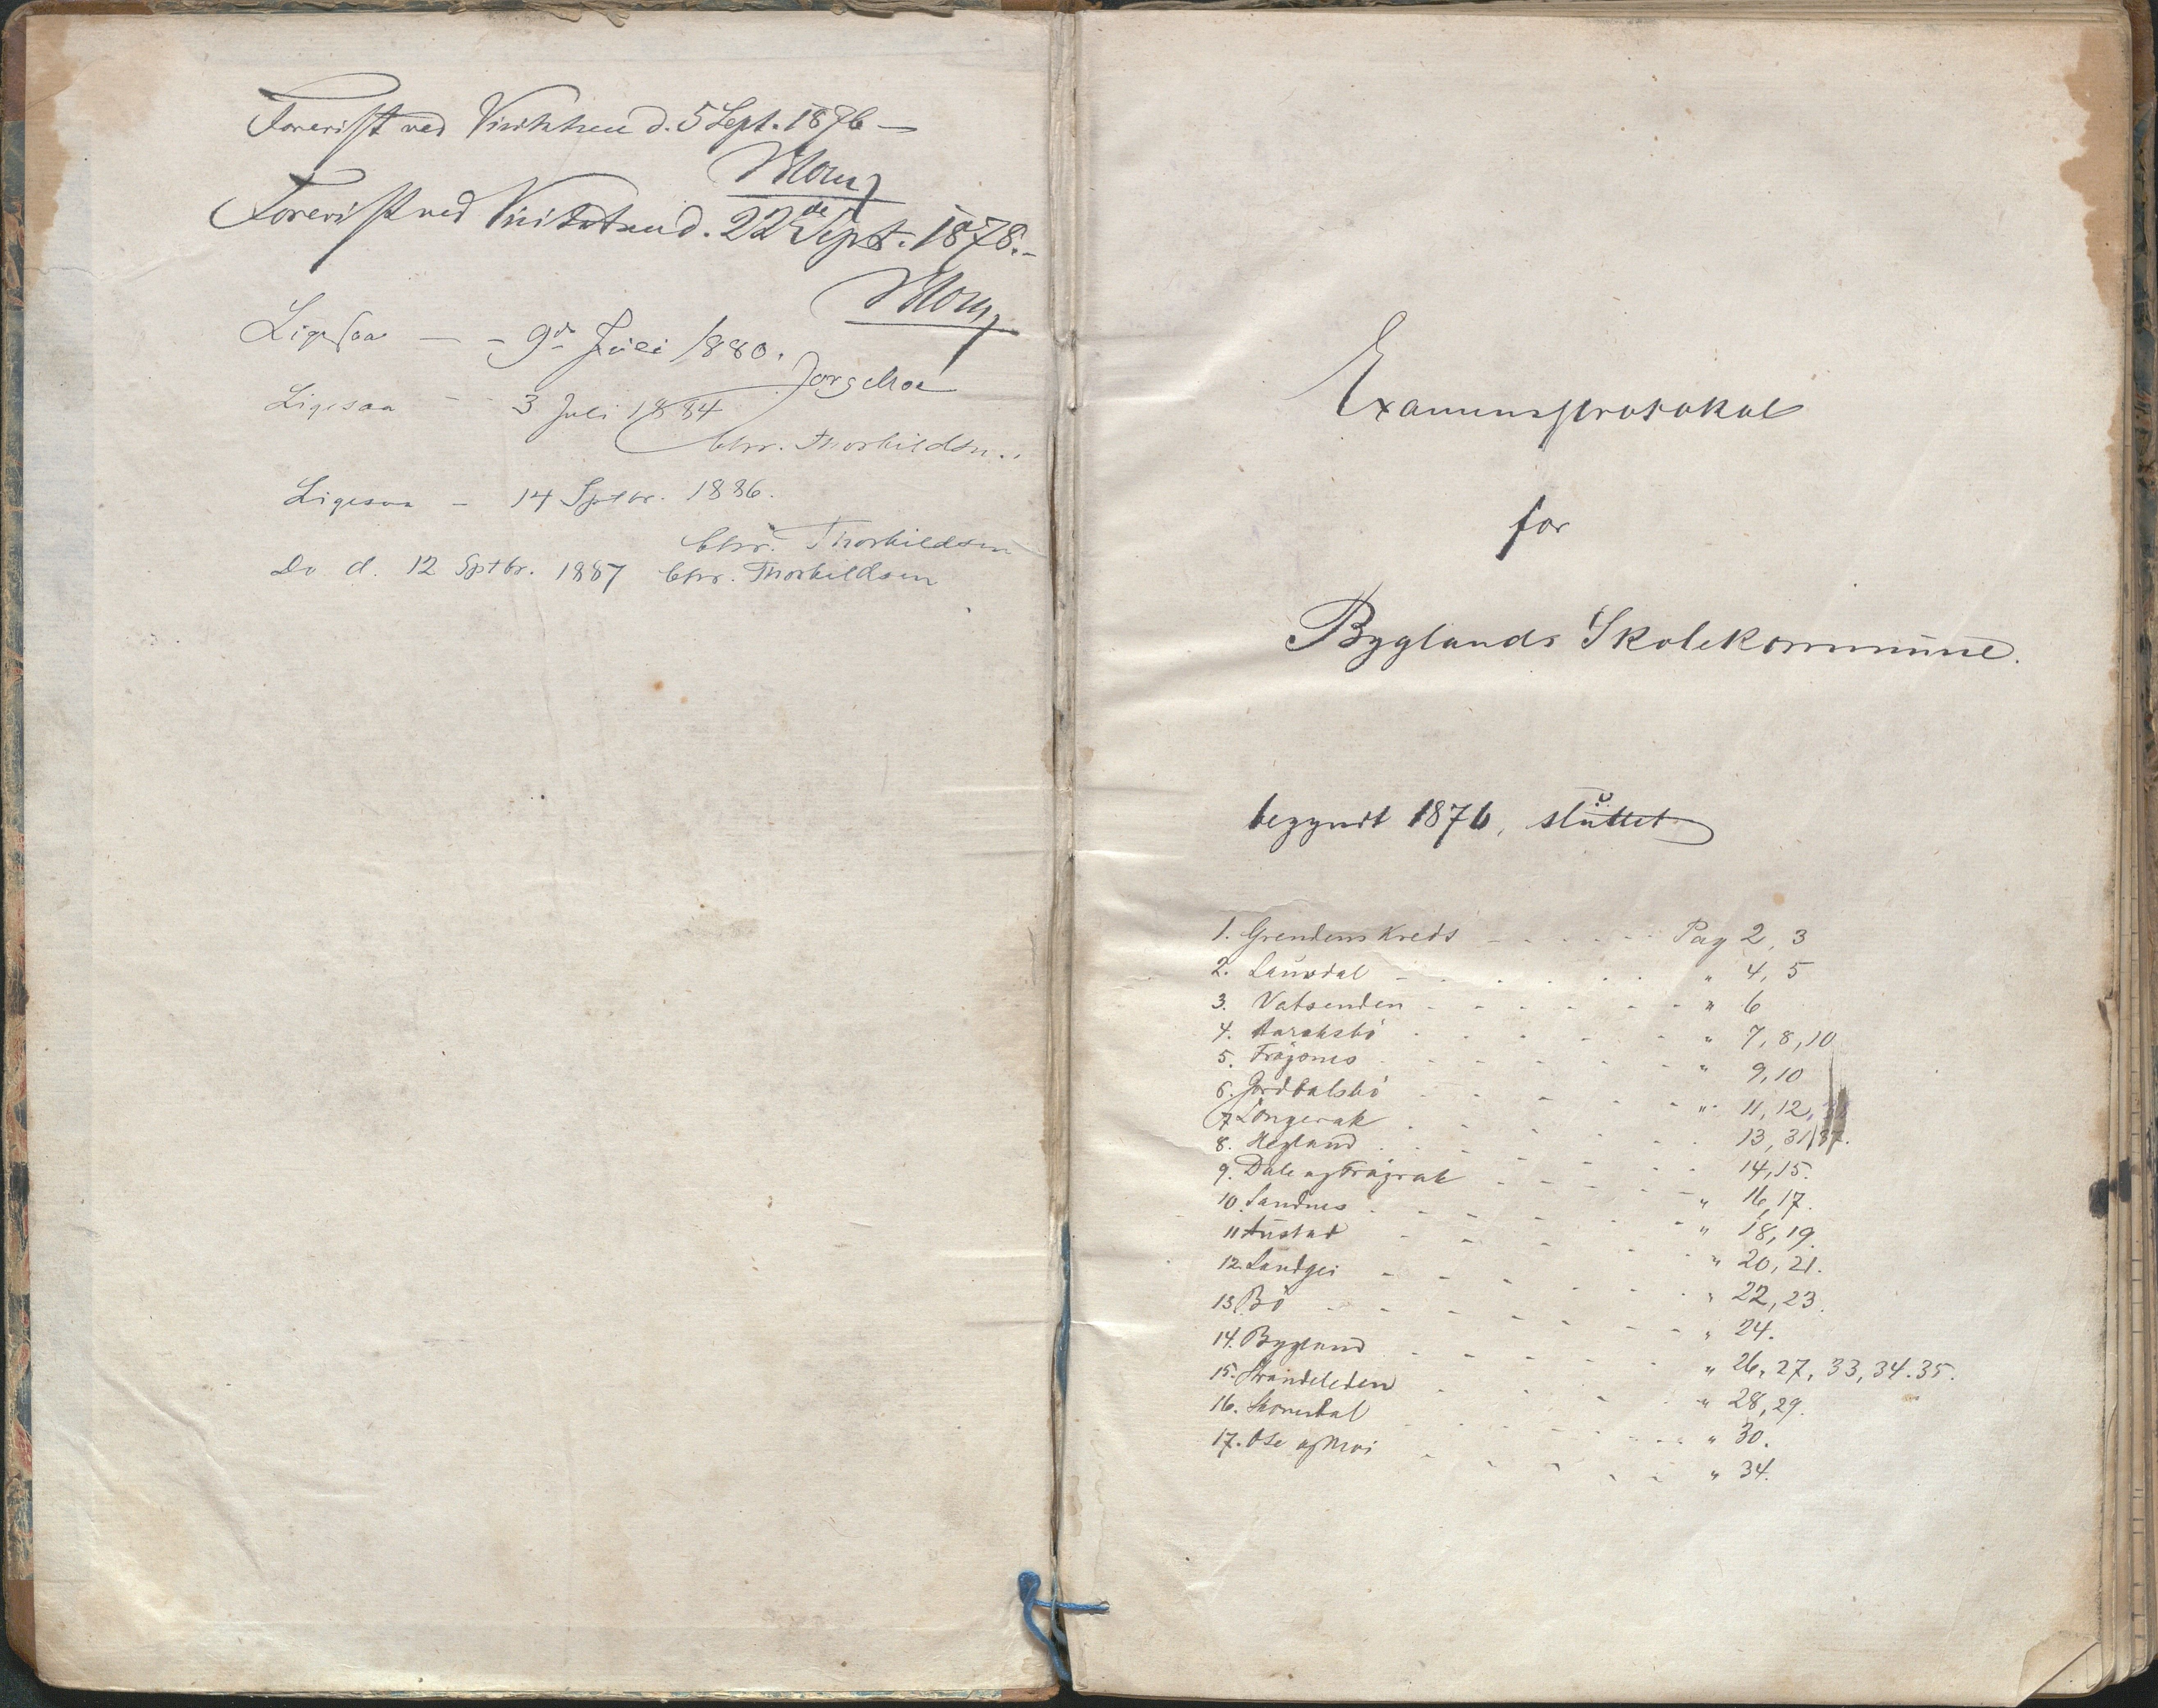 Forevist ved Visitatsen d. 5 Sept. 1876 —
Forevist ved Visitatsen d. 22de Sept. 1878. -
Ligesaa — - 9de Juli 1880.
Ligesaa - 3 Juli 1884
Chr. Thorkildsen.
Ligesaa - 14 Sptbr. 1886.
Chr. Thorkildsen
Do d. 12 Sptbr. 1887 Chr. Thorkildsen
Examensprotokol
for
Byglands Skolekommune.
begyndt 1876, sluttet
1. Grendens Kreds - - - - - Pag 2, 3
2. Lauvdal - - - - - " 4, 5
3. Vatsenden - - - - - " 6
4. Aaraksbö - - - - - " 7, 8, 10
5. Frøysnes - - - - - " 9, 10
6. Jordbalsbö - - - - - " 11, 12,
7 Longerak - - - - - 13, 31, 37.
8. Hegland - - - - - 14, 15.
9. Dale og Frøyrak - - - - - " 16, 17.
10. Sandnes - - - - - " 18, 19.
11 Austad - - - - - " 20, 21.
12. Landgei - - - - - " 22, 23.
13. Bö - - - - - " 24.
14. Bygland - - - - - " 26, 27, 33, 34. 35.
15. Strandeleden - - - - - " 28, 29.
16. Skomedal - - - - - " 30.
17. Ose og Moi - - - - - " 34.